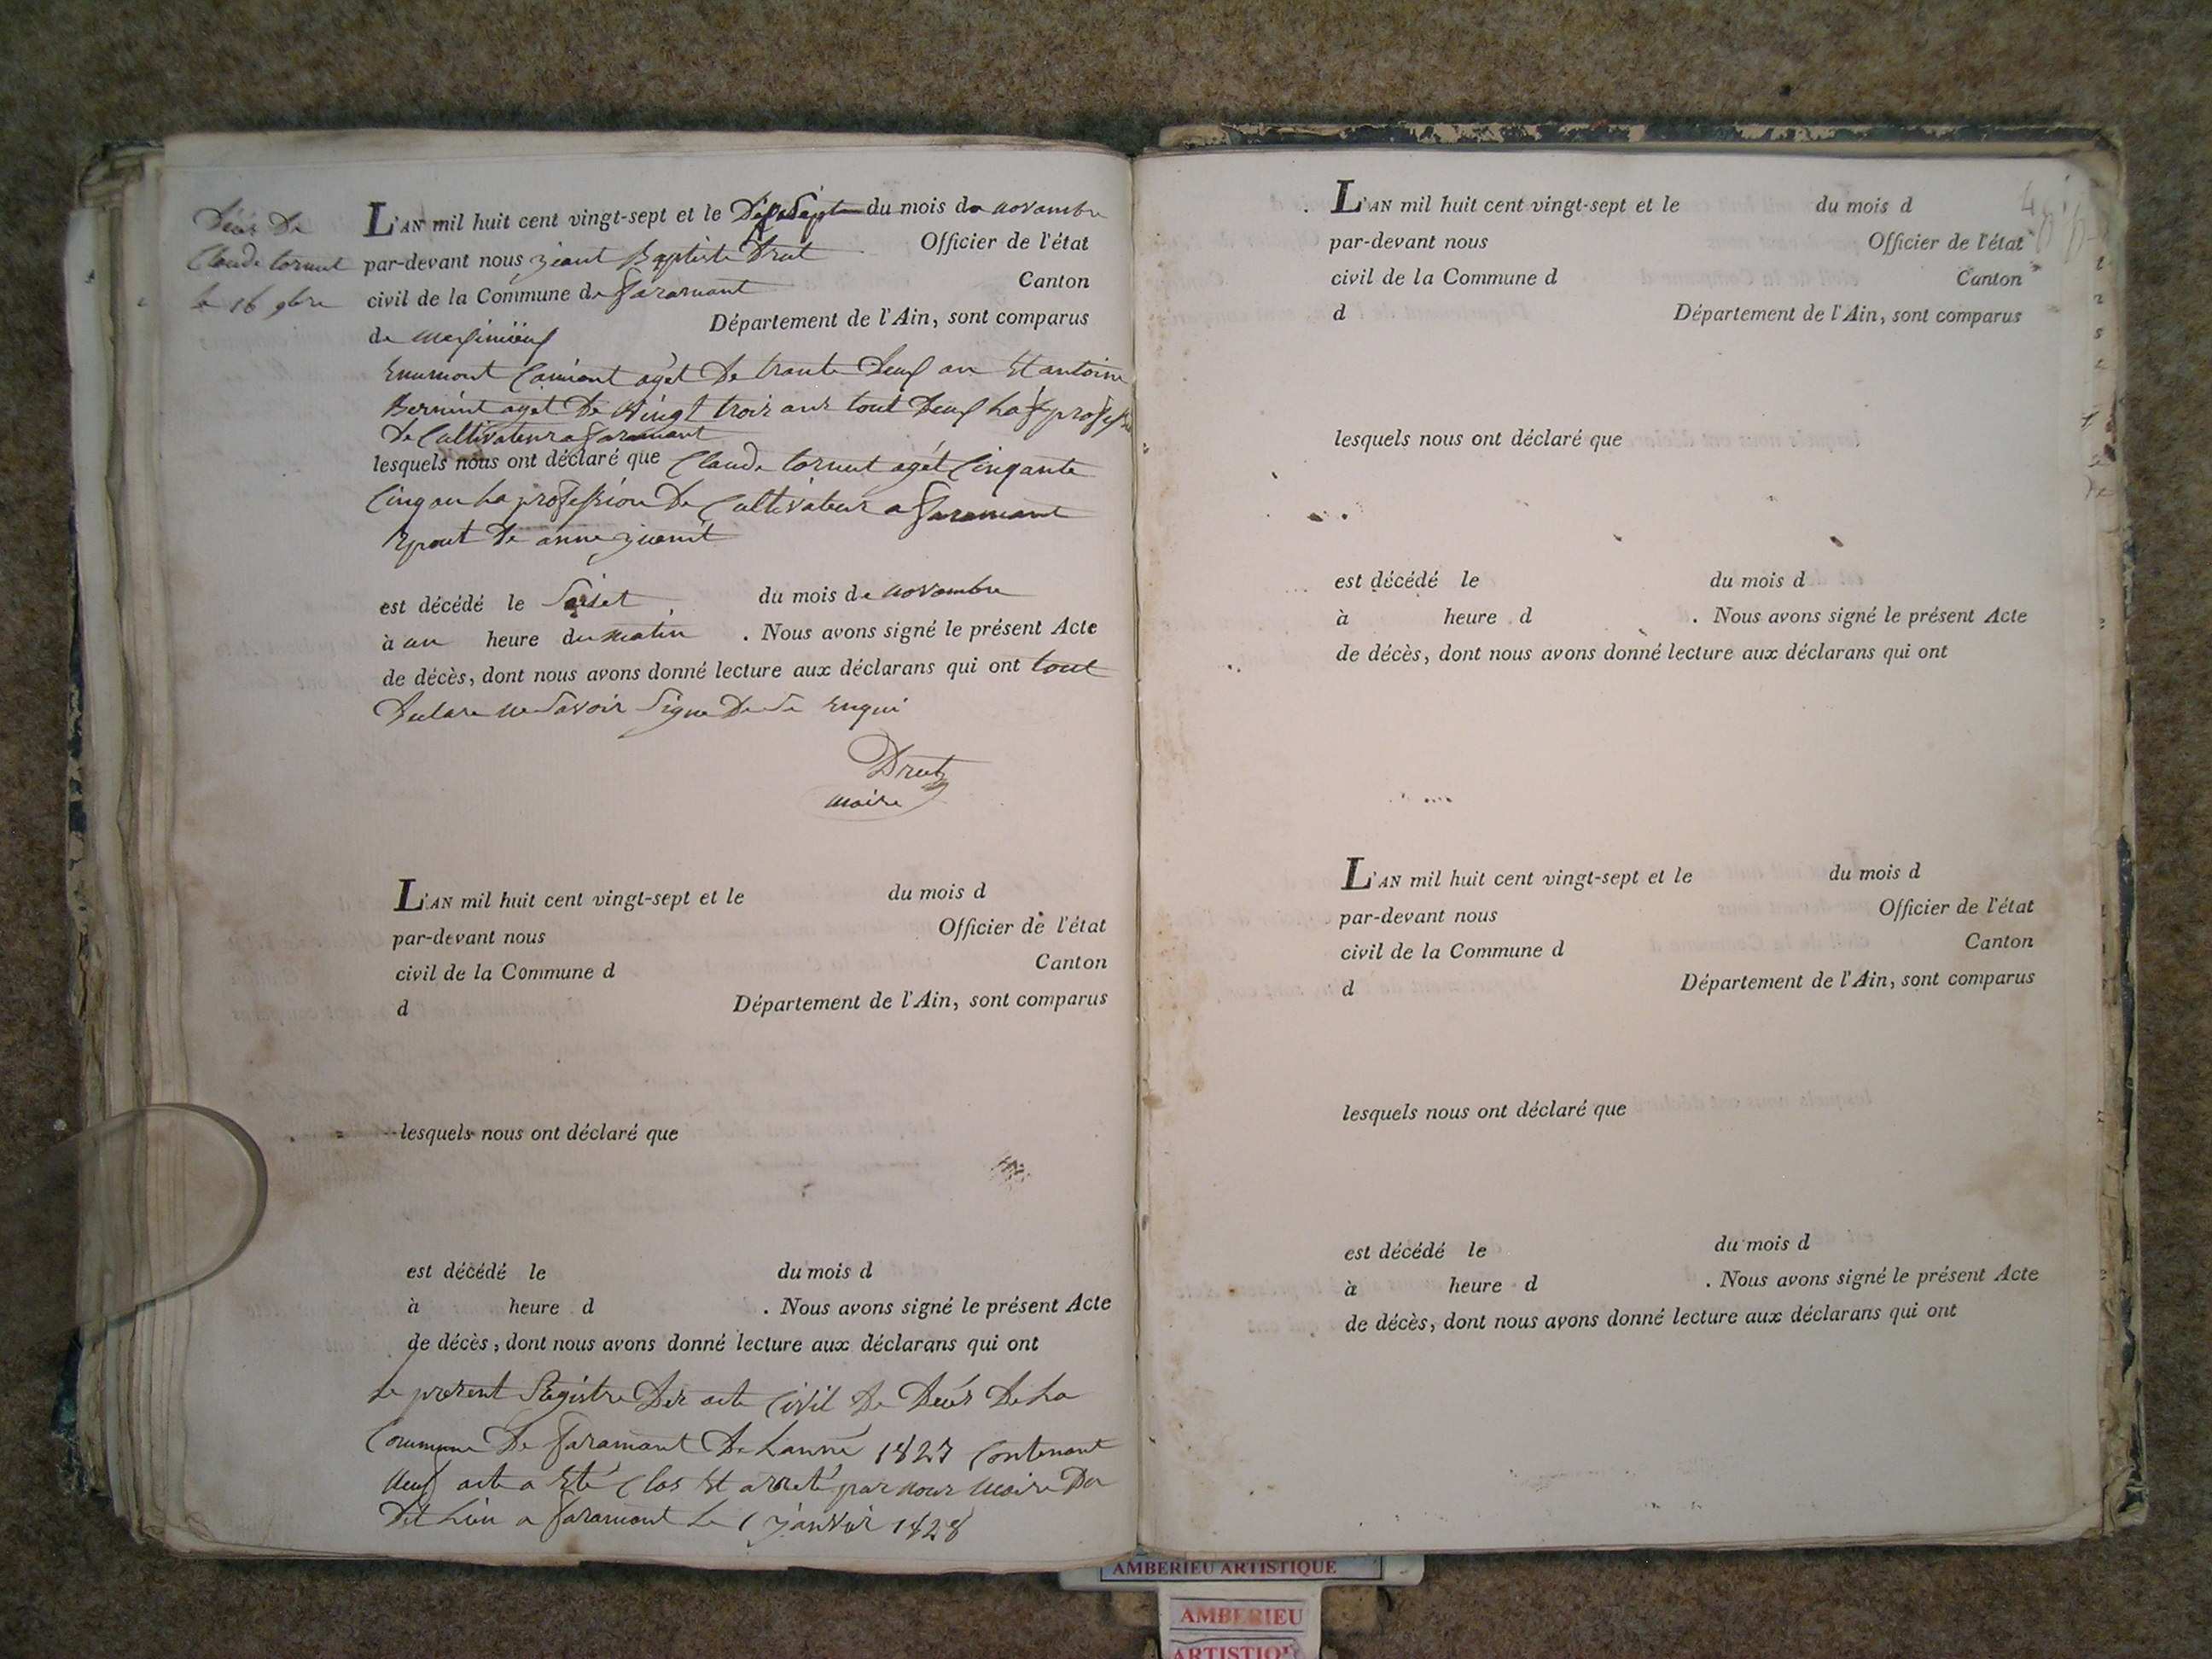 Décés De
Claude tornut
le 16 9bre
L'AN mil huit cent vingt-sept et le Dix Sept du mois de novambre
par-devant nous jeant Baptiste Drut Officier de l'état
civil de la Commune de faramant Canton
de Département de l'Ain, sont comparus
agét De trante Deux an Et antoine
aget De vingt trois ans tout Deux La profession
De Cultivateur a faramant
lesquels nous ont déclaré que Claude tornut agét Cinqante
Cinq an La profession De Cultivateur a faramant
Epout De anne
est décédé le Seiset du mois de novombre
à un heure du matin . Nous avons signé le présent Acte
de décès, dont nous avons donné lecture aux déclarans qui ont tout
Declare ne Savoir Signe De Se Enqui
Drut
maire
L'AN mil huit cent vingt-sept et le du mois d
par-devant nous Officier de l'état
civil de la Commune d Canton
d Département de l'Ain, sont comparus
lesquels nous ont déclaré que
est décédé le du mois d
à heure d . Nous avons signé le présent Acte
de décès, dont nous avons donné lecture aux déclarans qui ont
Le present Registre Des acte Civil De Decés De La
Commune De faramant De Lanné 1827 Contenant
neuf acte a Eté Clos Et arreté par nous maire Du
Dit Lieu a faramant Le 1 janviér 1828
L'AN mil huit cent vingt-sept et le du mois d
par-devant nous Officier de l'état
civil de la Commune d Canton
d Département de l'Ain, sont comparus
lesquels nous ont déclaré que
est décédé le du mois d
à heure d . Nous avons signé le présent Acte
de décès, dont nous avons donné lecture aux déclarans qui ont
L'AN mil huit cent vingt-sept et le du mois d
par-devant nous Officier de l'état
civil de la Commune d Canton
d Département de l'Ain, sont comparus
lesquels nous ont déclaré que
est décédé le du mois d
à heure d . Nous avons signé le présent Acte
de décès, dont nous avons donné lecture aux déclarans qui ont
AMBERIEU ARTISTIQUE
AMBERIEU
ARTISTIQUE